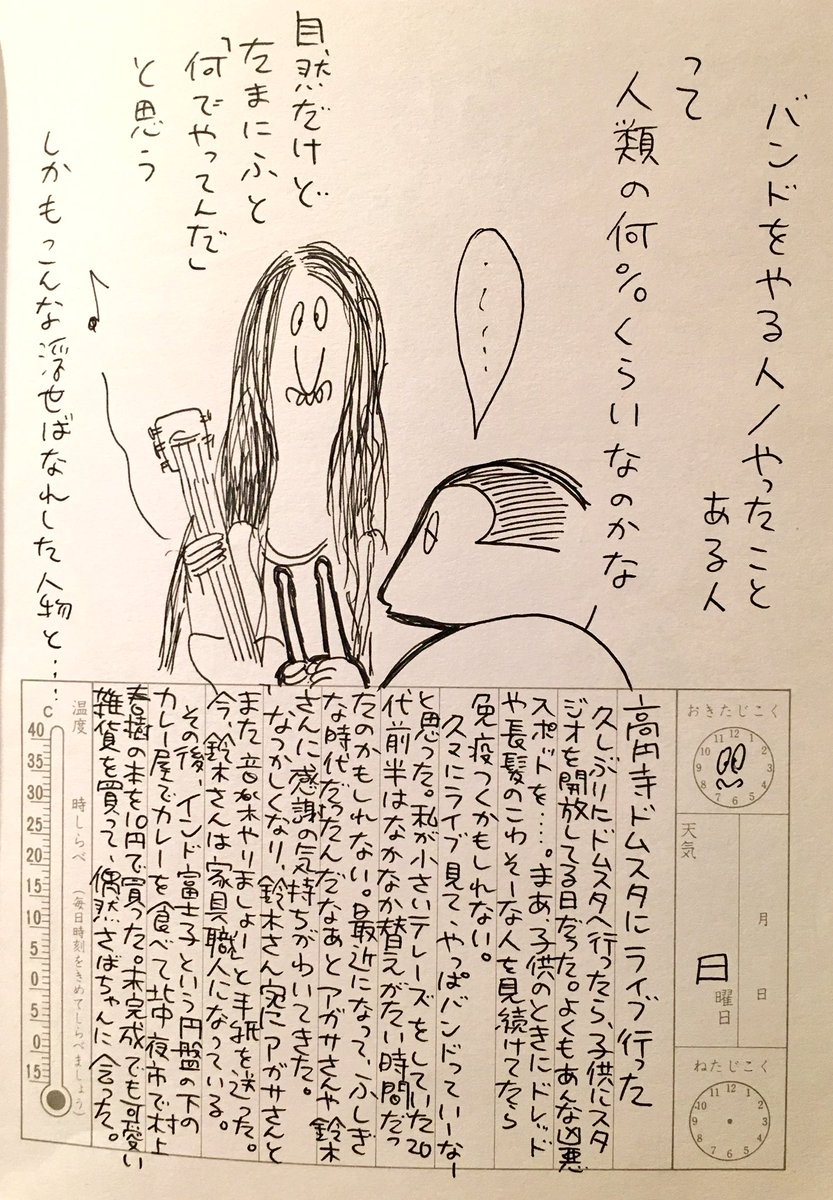 バンドをやる人/やったこと
ある人
って
人類の何%くらいなのかな
・・・・・
自然だけど
たまにふと
「何でやってんだ」
と思う
しかもこんな浮世ばなれした人物と…
おきたじこく
12 1 2 3 4 5 6 7 8 9 10 11
天気
月
日
日
曜日
ねたじこく
12 1 2 3 4 5 6 7 8 9 10 11
高円寺ドムスタにライブ行った
久しぶりにドムスタへ行ったら、子供にスタ
ジオを開放してる日だった。よくもあんな凶悪
スポットを…。まあ、子供のときにドレッド
や長髪のこわそーな人を見続けてたら
免疫つくかもしれない。
久々にライブ見て、やっぱバンドっていーなー
と思った。私が小さいテレーズをしていた20
代前半はなかなか替えがたい時間だっ
たのかもしれない。最近になって、ふしぎ
な時代だったんだなあとアガサさんや鈴木
さんに感謝の気持ちがわいてきた。
なつかしくなり、鈴木さん宛にアガサさんと
また音楽やりましょーと手紙を送った。
今、鈴木さんは家具職人になっている。
その後、インド富士子という円盤の下の
カレー屋でカレーを食べて北中夜市で村上
春樹の本を10円で買った。未完成でも可愛い
雑貨を買って、偶然さばちゃんに会った。
温度
時しらべ (毎日時刻をきめてしらべましょう)
C
40
35
30
25
20
15
10
5
0
5
0
15